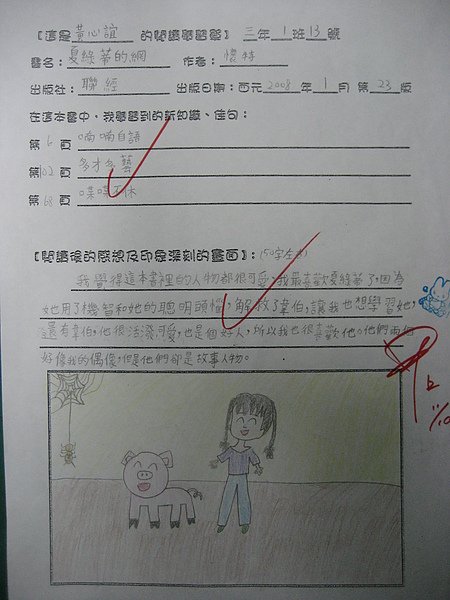 【這是黃心誼 的閱讀學習單】 三年 1 班 13 號
書名：夏綠蒂的網 作者：懷特
出版社：聯經 出版日期：西元 2008 年 1 月 第 23 版
在這本書中，我學習到的新知識、佳句：
第 6 頁 喃喃自語
第 102 頁 多才多藝
第 68 頁 喋喋不休
【閱讀後的感想及印象深刻的畫面】：(50字左右)
我覺得這本書裡的人物都很可愛，我最喜歡夏綠蒂了，因為
她用了機智和她的聰明頭腦，解救了韋伯，讓我也想學習她，
還有韋伯，他很活潑可愛，也是個好人，所以我也很喜歡他。他們兩個
好像我的偶像，但是他們卻是故事人物。